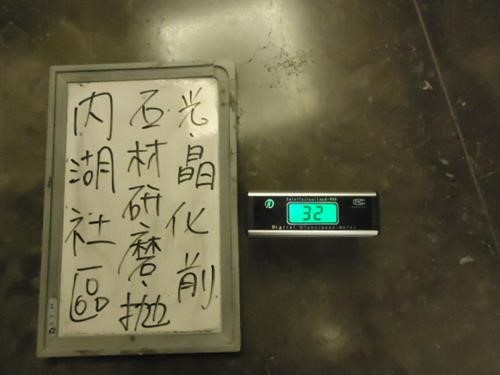 內湖社區
石材研磨.拋
光.晶化前
32
Digital Glossgard-meter